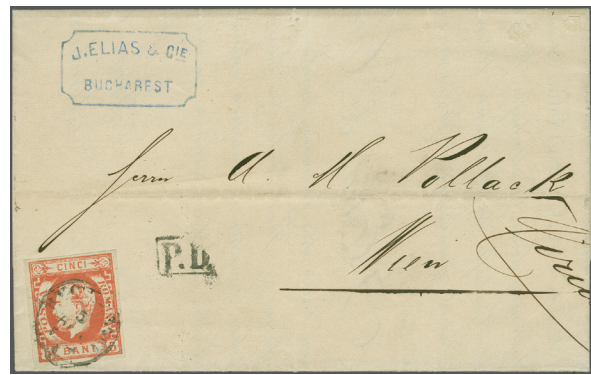 J. ELIAS & CIE
BUCHAREST
Herrn A. M. Pollack
Wien
P.D.
CINCI
BANI